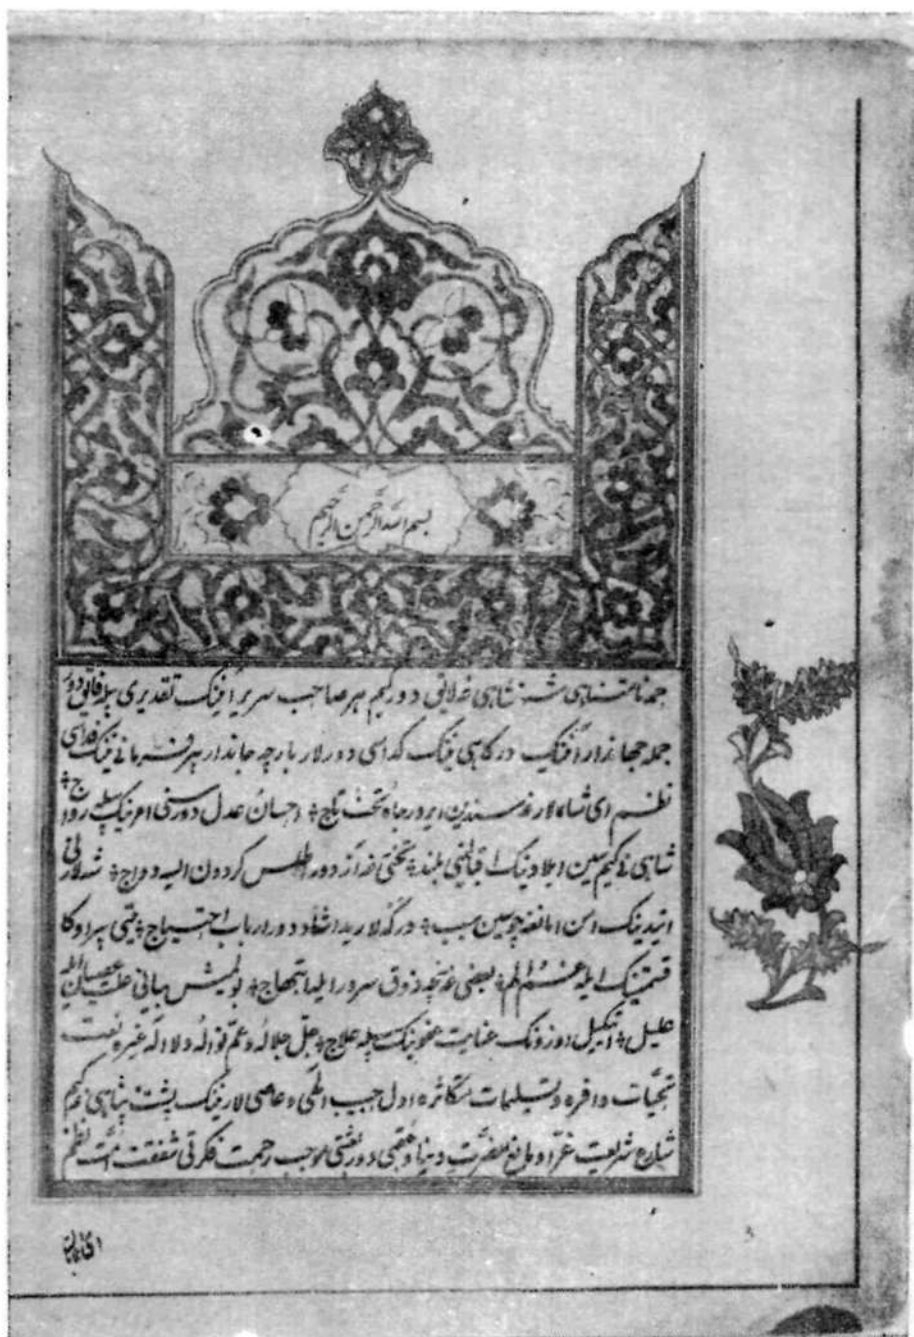 بسم الله الرحمن الرحيم
حمد نامتناهی شهنشاهی غه لایق دور کیم هر صاحب سریر آنینک تقدیری بیله فایق دور
جمله جهاندار آنینک درکاهی نینک کداسی دورلار بارچه جاندار هر فرمانی نینک فداسی
نظم ای شاهلار سندین ایرور جاه تخت تاج احسان عدل دور سنی امرینک بیله رواج
شاهی نی کیم سین ایلادینک اقبالینی بلند تختی دور اطلس کردون الیه دواج
ایتدینک سین سبب درکه لاریدا دورار باب احتیاج یتیی
قسمتینک ایله غم الم بعضی غه ذوق سرور ایله ابتهاج بولمیش بیانی علت عصیان ایله
علیل قیلغیل اوزونک عنایت عفونک بیله علاج جل جلاله وعم نواله ولا اله غیره نعت
تحیات وافره وتسلیمات متکاثره اول حبیب الهی وعاصی لارنینک پشت پناهی غه کیم
شارع شریعت غرا ومانع مضرت دنیا وعقبی دور موجب رحمت فکرتی شفقت امت نظم